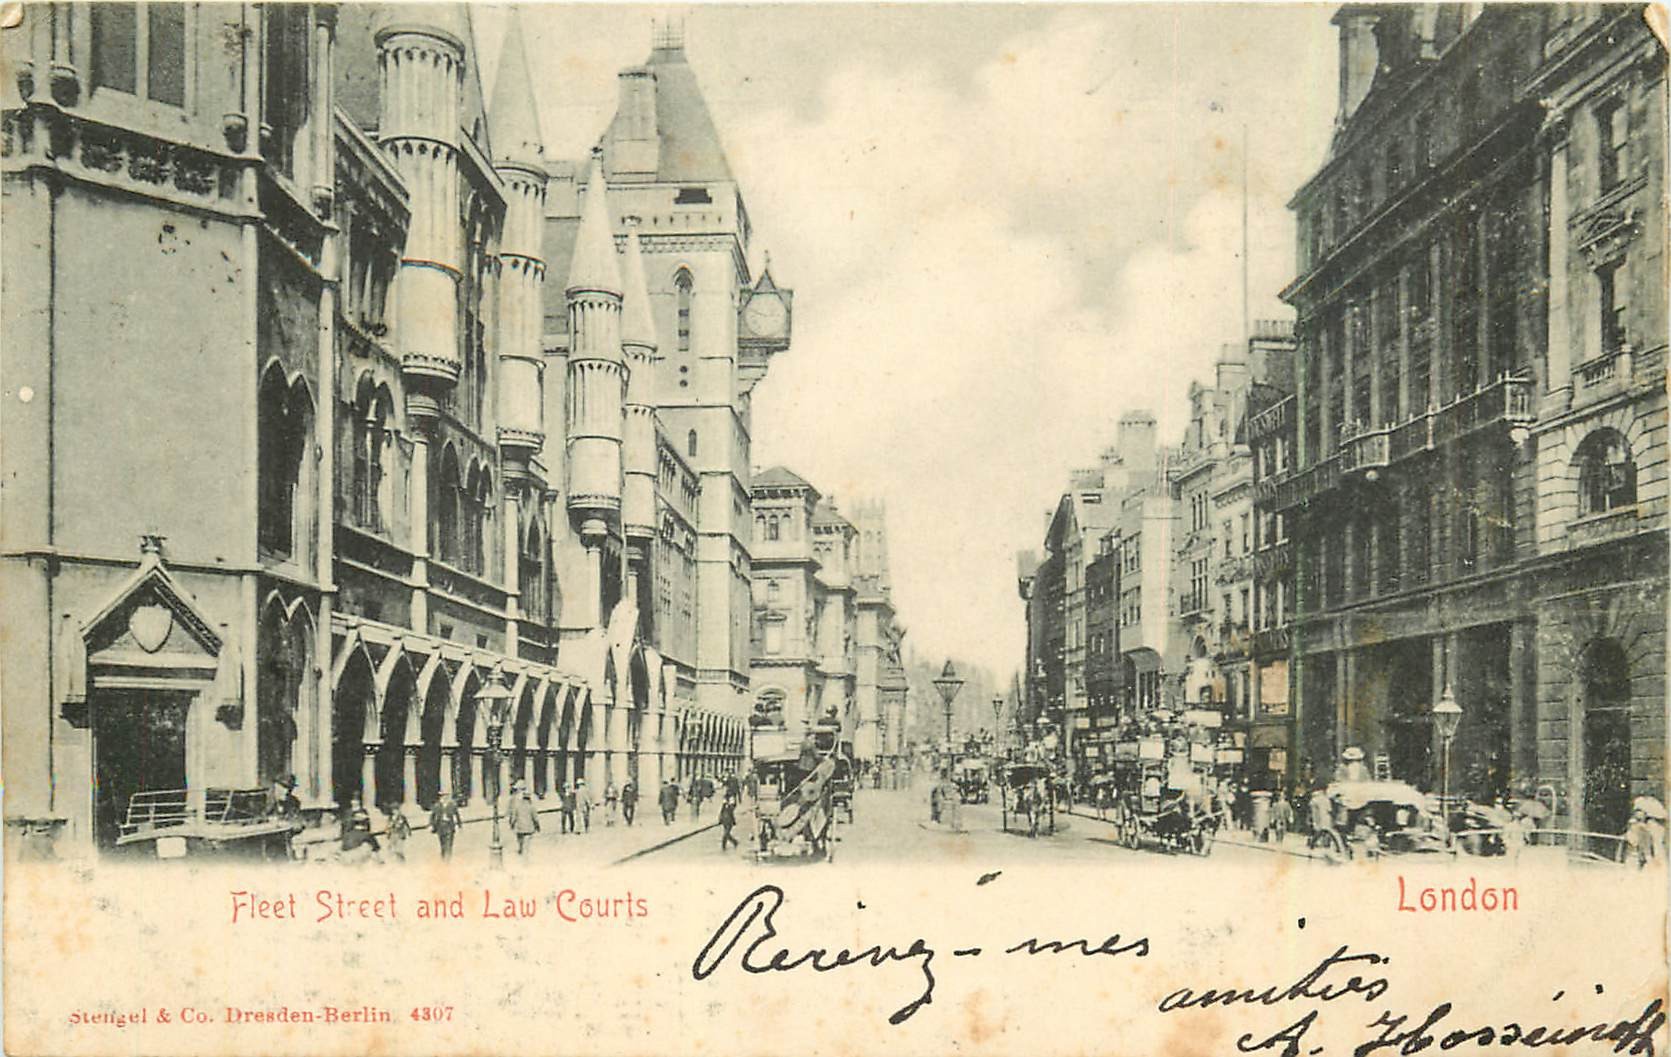 Fleet Street and Law Courts
London
Recevez-mes
amitiés
A.
Stengel & Co. Dresden-Berlin 4307